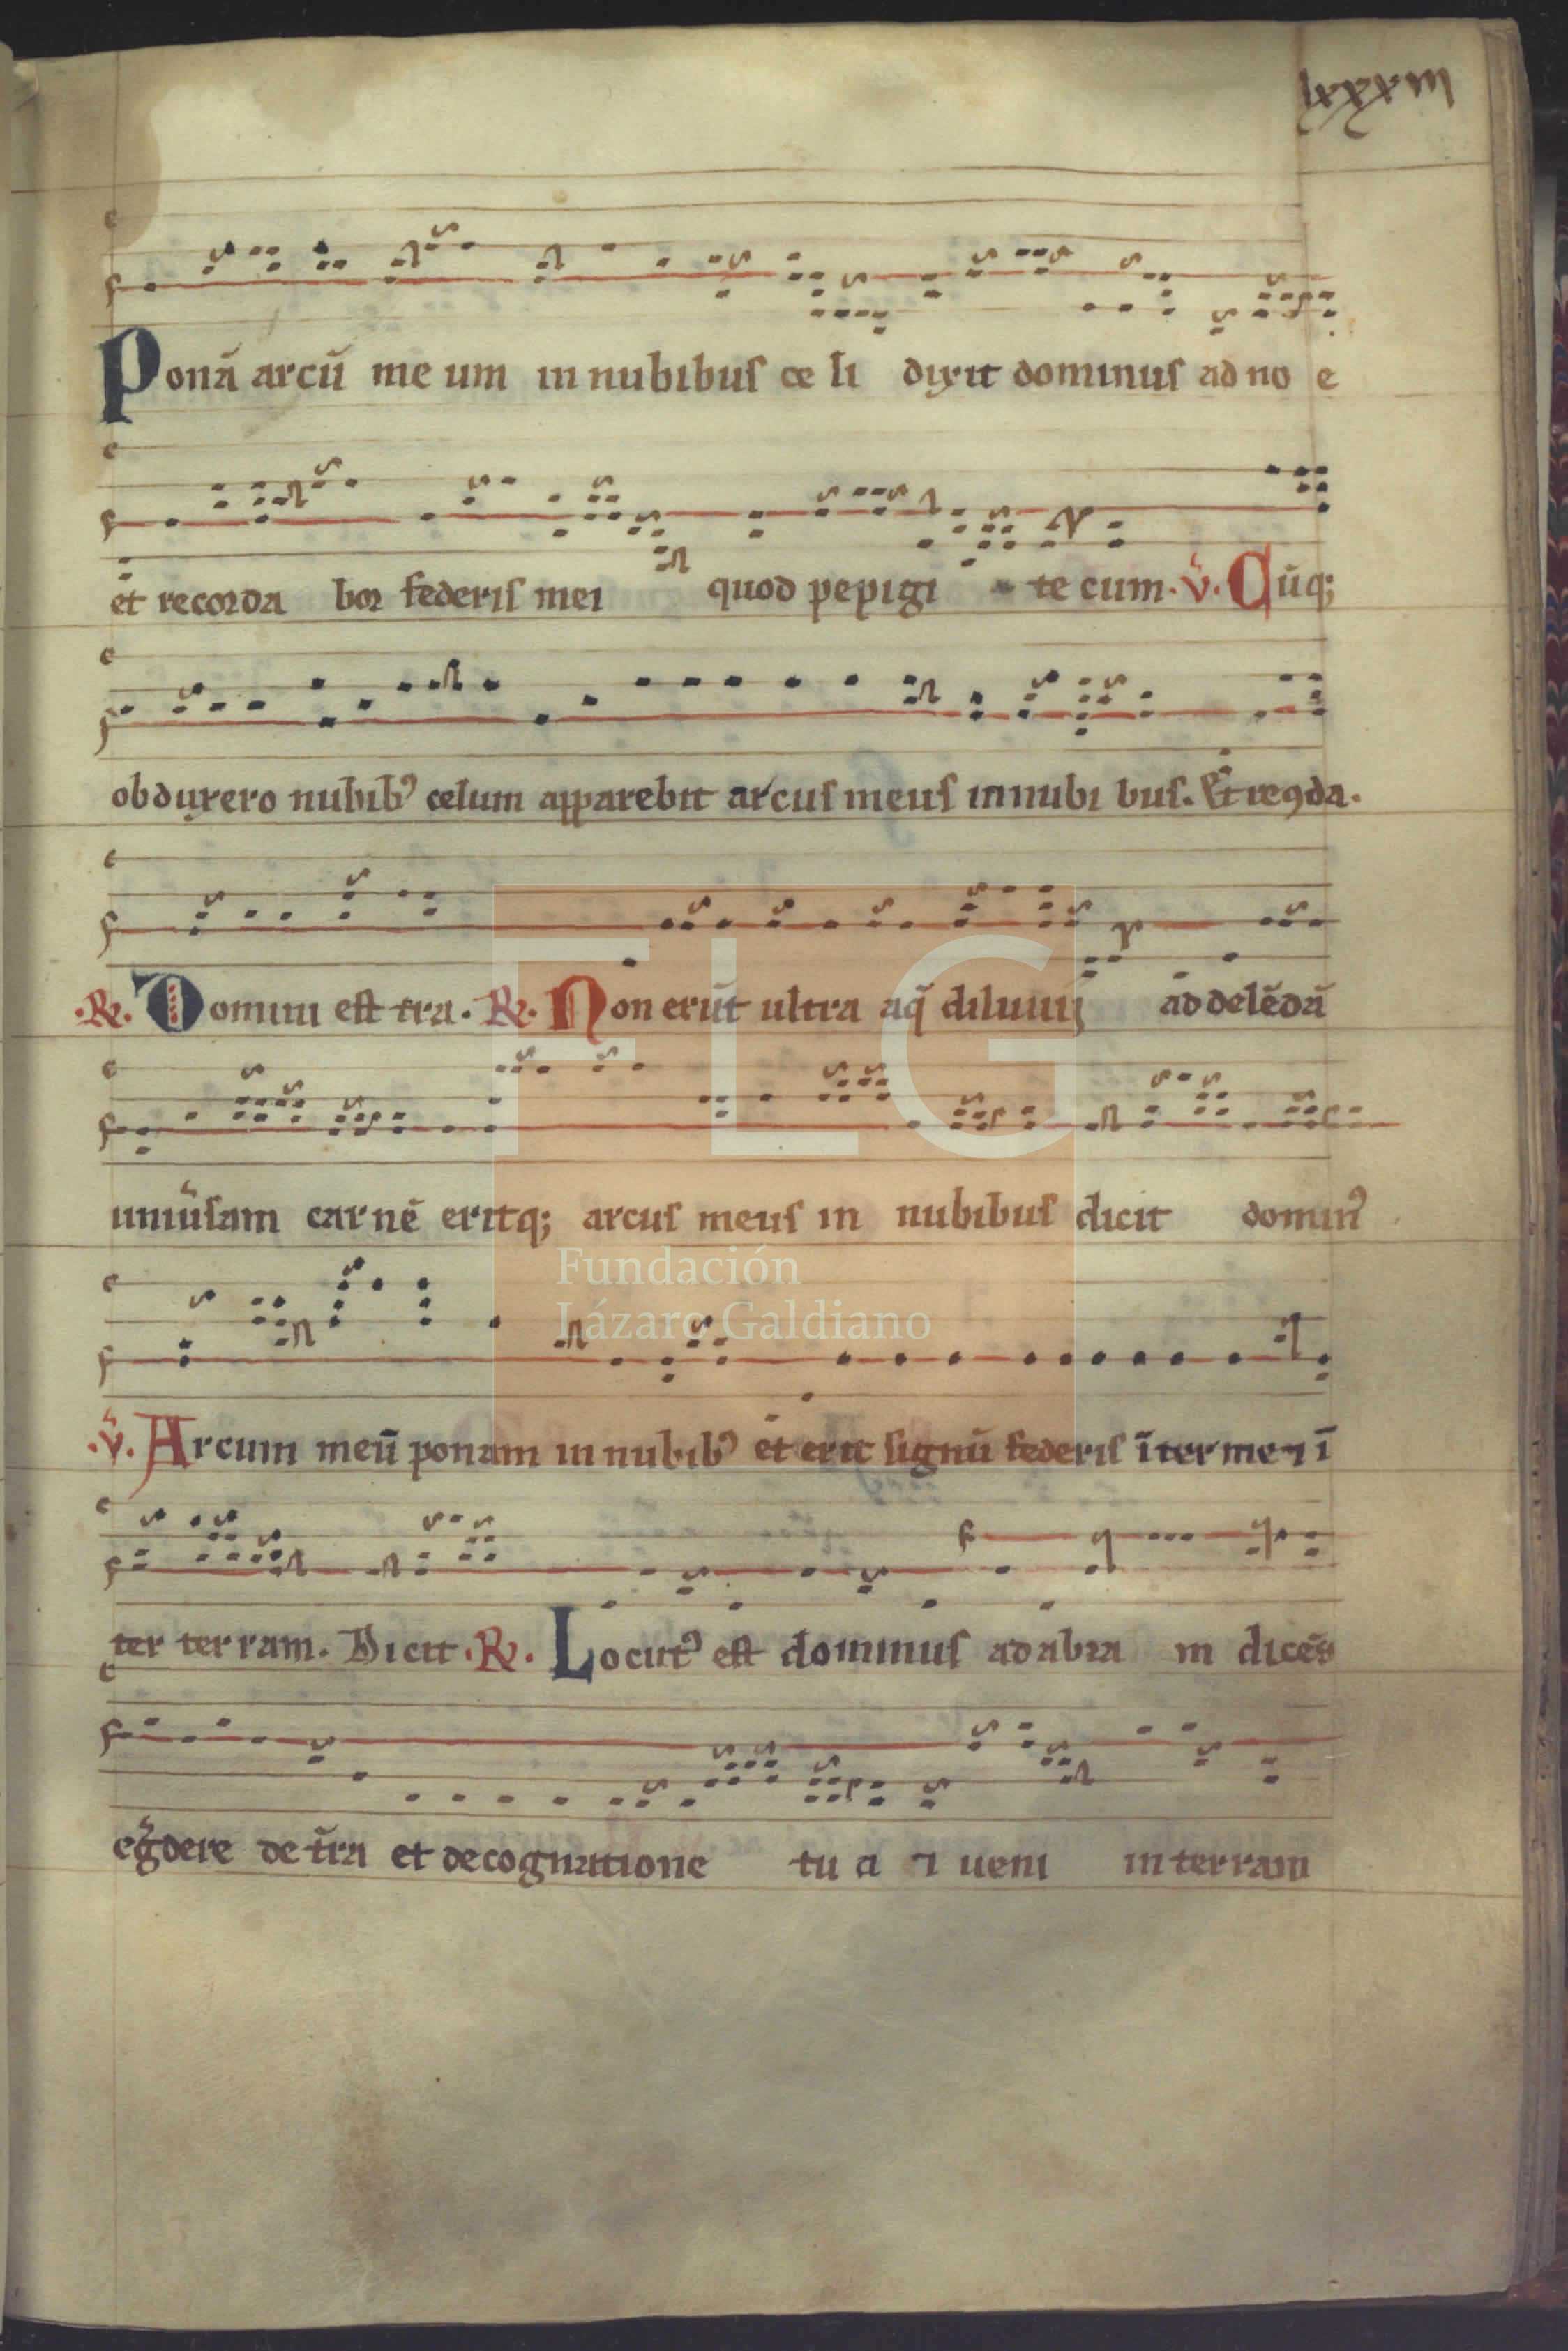 lxxxiii
Ponā arcū me um in nubibus ce li dixit dominus ad no e
et recorda bor federis mei quod pepigi te cum. v̄. Cūq;
obduxero nubibꝰ celum apparebit arcus meus in nubi bus. Et recꝯda.
.R. Domini est tr̄a. R. Non erūt ultra aq̄ diluuij ad delēdā
uniu̾sam carnē eritq; arcus meus in nubibus dicit dominꝰ
.v̄. Arcum meū ponam in nubibꝰ et erit signū federis īter me ⁊ ī
ter ter ram. Dicit .R. Locutꝰ est dominus ad abra m dicēs
eg̾dere de tr̄a et de cognatione tu a ⁊ ueni in terram
FLG
Fundación
Lázaro Galdiano